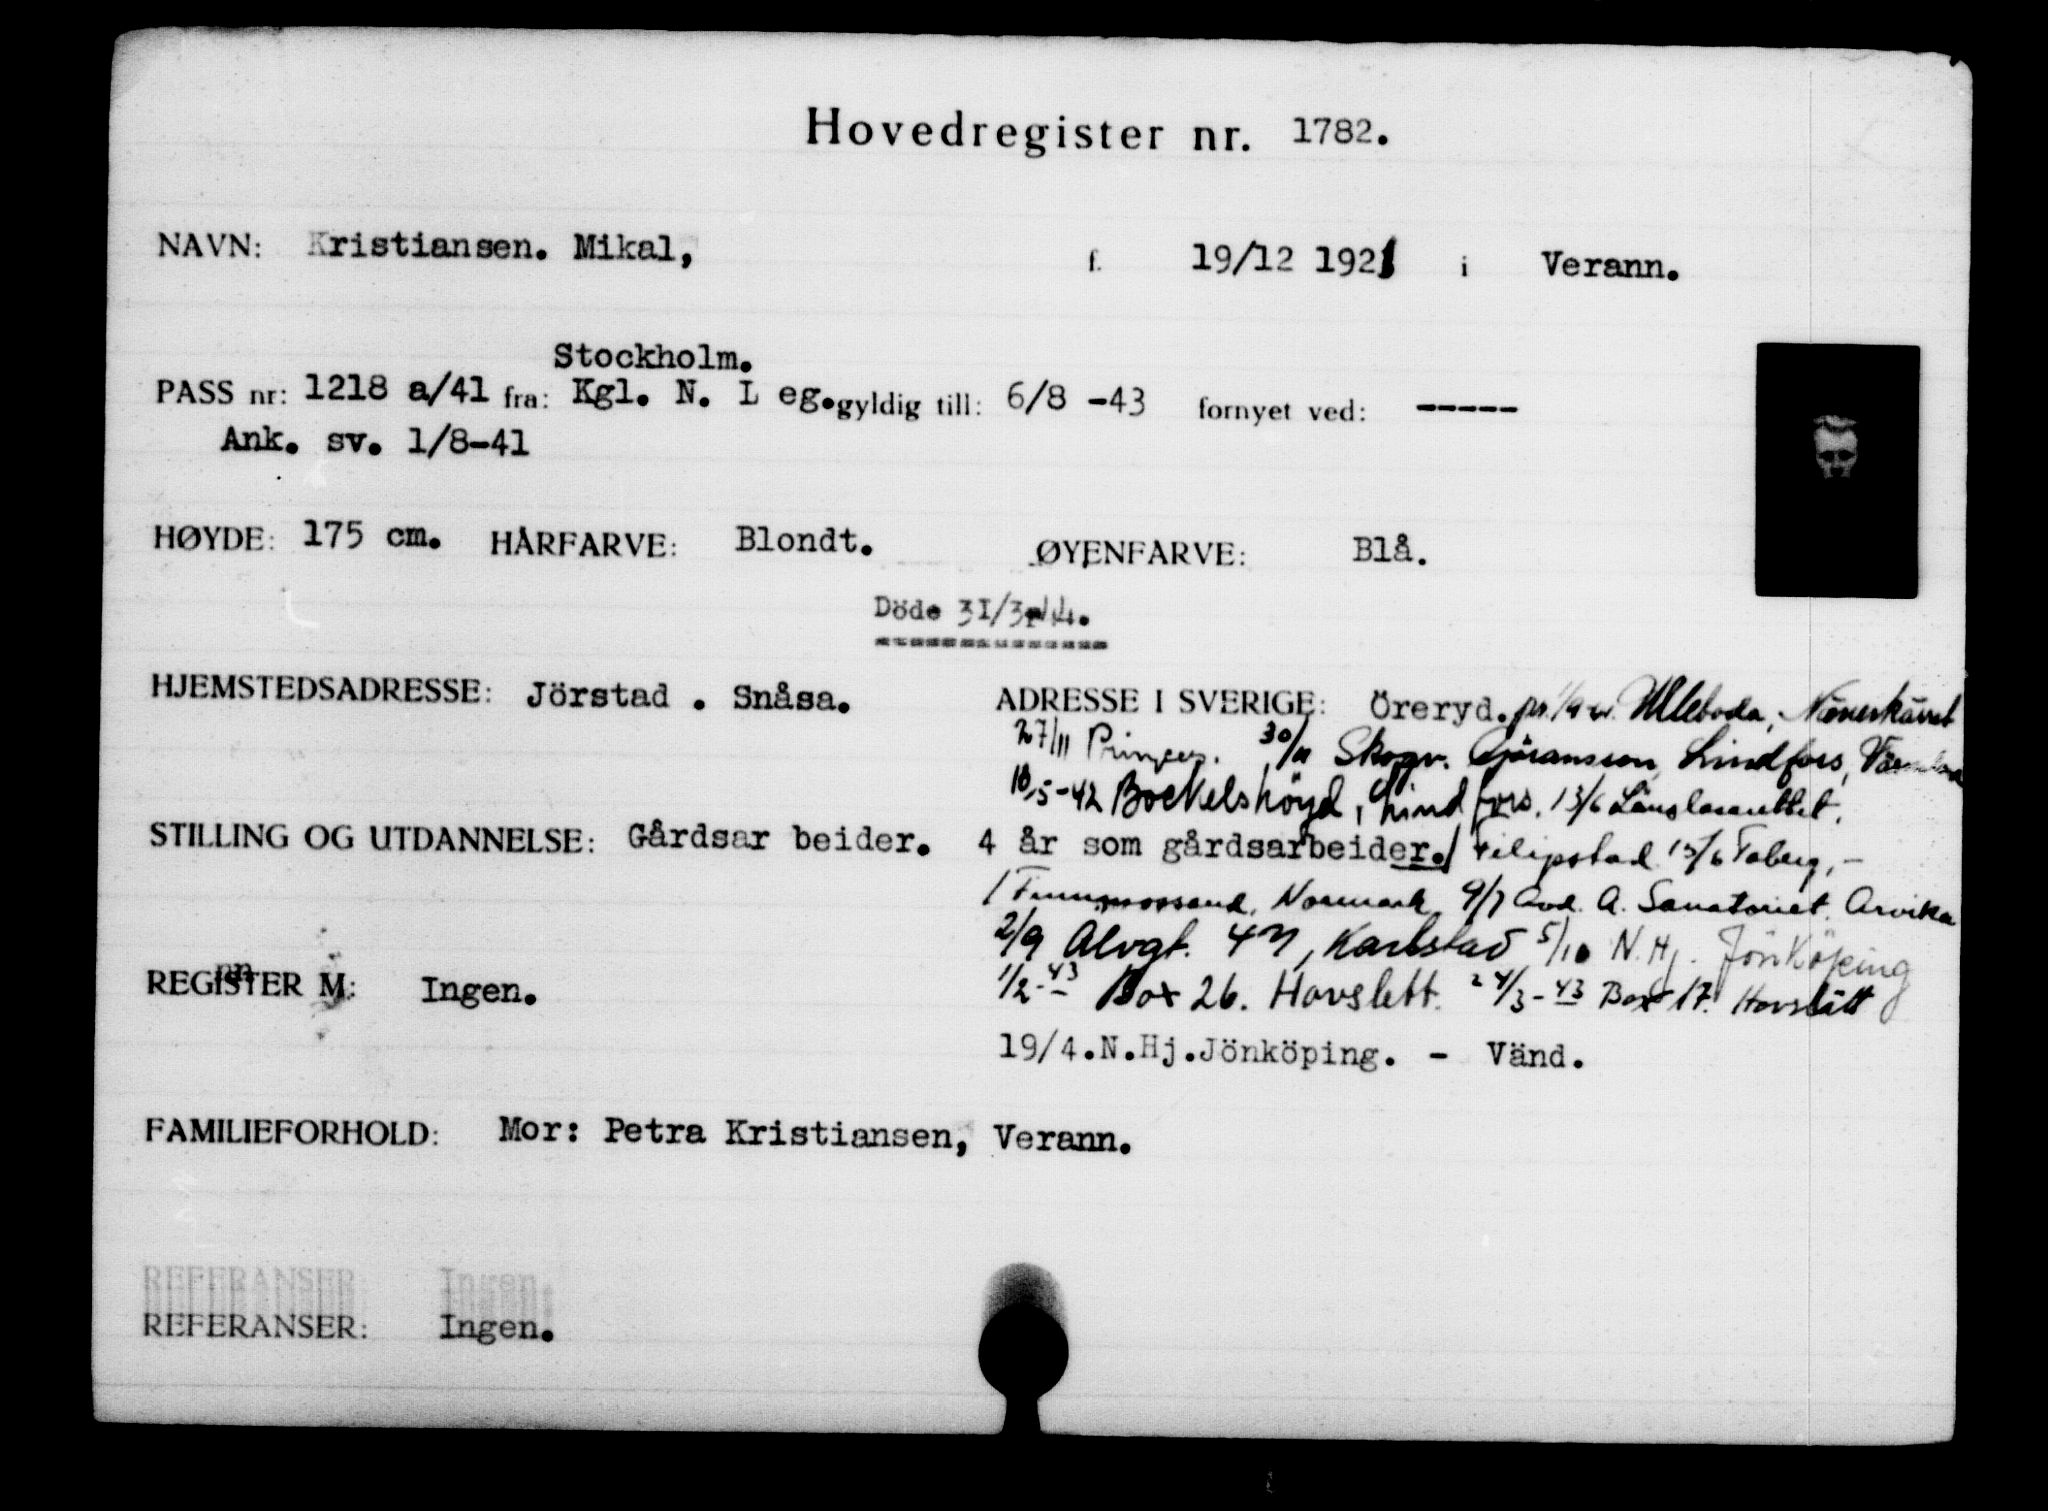 Hovedregister nr. 1782.
NAVN: Kristiansen. Mikal, f. 19/12 1921 i Verann.
Stockholm.
PASS nr: 1218 a/41 fra: Kgl. N. L eg. gyldig till: 6/8 -43 fornyet ved: -----
Ank. sv. 1/8-41
HØYDE: 175 cm. HÅRFARVE: Blondt. ØYENFARVE: Blå.
Döde 31/3-44.
HJEMSTEDSADRESSE: Jörstad . Snåsa. ADRESSE I SVERIGE: Öreryd. Ulleboda,
27/11 30/11 Skogv. Göransson, Lindfors,
18/5-42 Bockelshöyd, Lindfors. 13/6 Länslasarettet,
STILLING OG UTDANNELSE: Gårdsar beider. 4 år som gårdsarbeider. / Filipstad 15/6 Taberg, -
/ Finnmossand, Normark 9/7 Avd. A. Sanatoriet. Arvika
2/9 Alvgt. 47, Karlstad 5/10 N. Hj. Jönköping
REGISTER M: nn Ingen. 1/2-43 Box 26. Hovslett. 24/3-43 Box 17. Hovslätt
19/4.N.Hj.Jönköping. - Vänd.
FAMILIEFORHOLD: Mor: Petra Kristiansen, Verann.
REFERANSER: Ingen.
REFERANSER: Ingen.